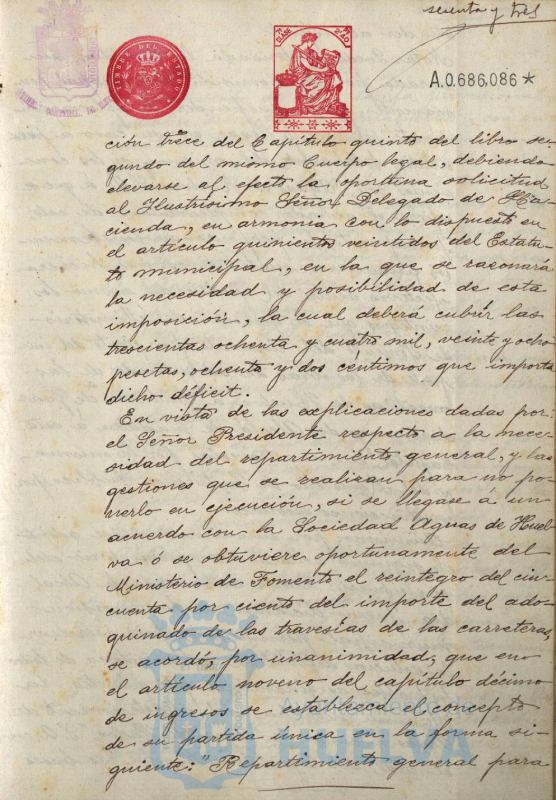 sesenta y tres
TIMBRE DEL ESTADO
7ª CLASE
2'40
A.0.686,086*
ción trece del Capítulo quinto del libro se-
gundo del mismo Cuerpo legal, debiendo
elevarse al efecto la oportuna solicitud
al Ilustrísimo Señor Delegado de Ha-
cienda, en armonía con lo dispuesto en
el artículo quinientos veintidos del Estatu-
to municipal, en la que se razonará
la necesidad y posibilidad de esta
imposición, la cual deberá cubrir las
trescientas ochenta y cuatro mil, veinte y ocho
pesetas, ochenta y dos céntimos que importa
dicho déficit.
En vista de las explicaciones dadas por
el Señor Presidente respecto a la nece-
sidad del repartimiento general, y las
gestiones que se realizan para no po-
nerlo en ejecución, si se llegase á un
acuerdo con la Sociedad Aguas de Huel-
va ó se obtuviere oportunamente del
Ministerio de Fomento el reintegro del cin-
cuenta por ciento del importe del ado-
quinado de las travesías de las carreteras,
se acordó, por unanimidad, que en
el artículo noveno del capítulo décimo
de ingresos se establezca el concepto
de su partida única en la forma si-
guiente: "Repartimiento general para
HUELVA